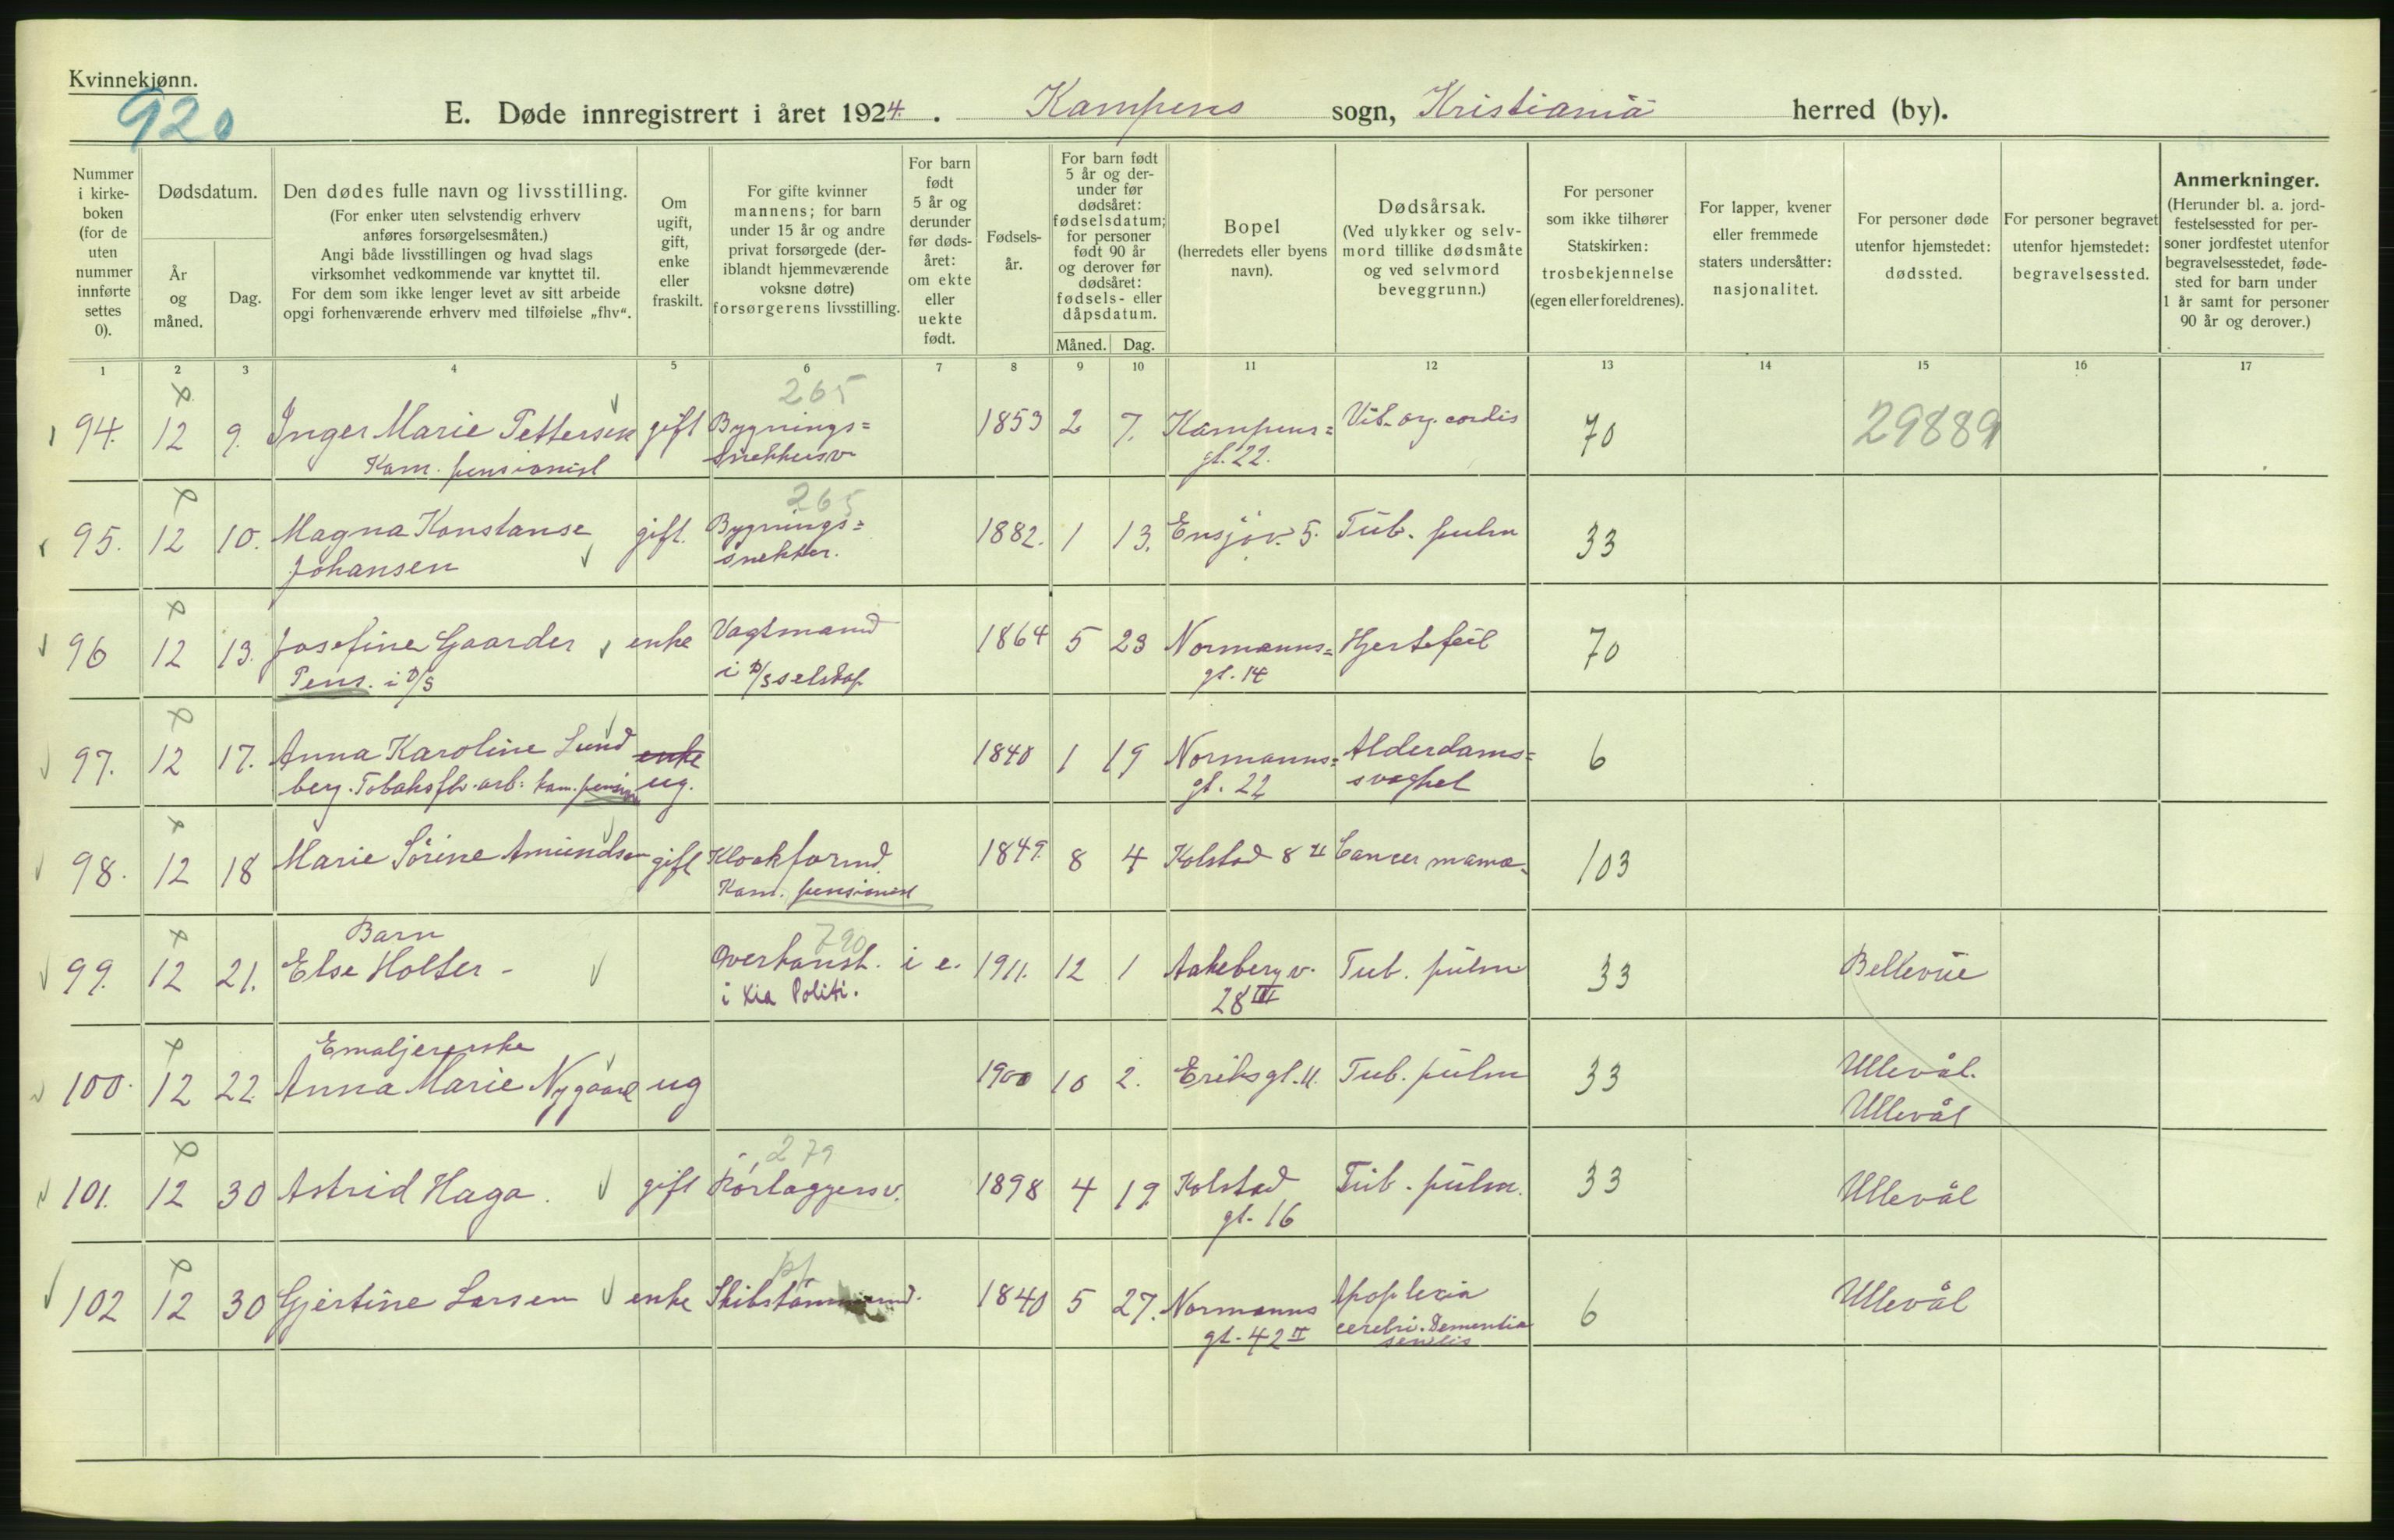 Kvinnekjønn.
920
E. Døde innregistrert i året 1924. Kampens sogn, Kristiania herred (by).
Nummer i kirke-boken (for de uten nummer innførte settes 0).
Dødsdatum.
År og måned.
Dag.
Den dødes fulle navn og livsstilling.
(For enker uten selvstendig erhverv anføres forsørgelsesmåten.)
Angi både livsstillingen og hvad slags virksomhet vedkommende var knyttet til.
For dem som ikke lenger levet av sitt arbeide opgi forhenværende erhverv med tilføielse „fhv“.
Om ugift, gift, enke eller fraskilt.
For gifte kvinner mannens; for barn under 15 år og andre privat forsørgede (der-iblandt hjemmeværende voksne døtre) forsørgerens livsstilling.
For barn født 5 år og derunder før døds-året: om ekte eller uekte født.
Fødsels-år.
For barn født 5 år og der-under før dødsåret: fødselsdatum; for personer født 90 år og derover før dødsåret: fødsels- eller dåpsdatum.
Måned. Dag.
Bopel (herredets eller byens navn).
Dødsårsak. (Ved ulykker og selv-mord tillike dødsmåte og ved selvmord beveggrunn.)
For personer som ikke tilhører Statskirken: trosbekjennelse (egen eller foreldrenes).
For lapper, kvener eller fremmede staters undersåtter: nasjonalitet.
For personer døde utenfor hjemstedet: dødssted.
For personer begravet utenfor hjemstedet: begravelsessted.
Anmerkninger. (Herunder bl. a. jord-festelsessted for per-soner jordfestet utenfor begravelsesstedet, føde-sted for barn under 1 år samt for personer 90 år og derover.)
1 2 3 4 5 6 7 8 9 10 11 12 13 14 15 16 17
265
94. 12 9. Inger Marie Pettersen gift Bygnings= 1853 2 7. Kampens= Vit. org. cordis 70 29889
Kom. pensionist snekkersv. gt. 22.
265
95. 12 10. Magna Konstanse gift. Bygnings= 1882. 1 13. Ensjøv. 5. Tub. pulm 33
Johansen snekker.
96 12 13. Josefine Gaarder enke Vagtmand 1864 5 23 Normanns= Hjertefeil 70
Pens. i D/S i D/S selskap gt. 14
97. 12 17. Anna Karoline Lund enke 1840 1 19 Normanns= Alderdoms= 6
berg. Tobaksfb. arb. kom. pension ug. gt. 22 svaghet
98. 12 18 Marie Sørine Amundsen gift Kloakformd. 1849. 8 4 Kolstad 8 II Cancer mama. 103
Kom. pensionist
Barn 790
99. 12 21. Else Holter - Overkonst. i e. 1911. 12 1 Aakeberg v. Tub. pulm 33 Bellevue
i Kia Politi. 28 III
Emaljererske
100. 12 22. Anna Marie Nygaard ug 1900 10 2. Eriksgt. 11. Tub. pulm 33 Ullevål.
Ullevål
279
101. 12 30 Astrid Haga. gift Rörlæggersv. 1898 4 19. Kolstad Tub. pulm. 33 Ullevål
gt. 16
102 12 30 Gjertine Larsen enke 1840 5 27. Normanns Apoplexia 6 Ullevål
gt. 42 II cerebri. Dementia
senilis